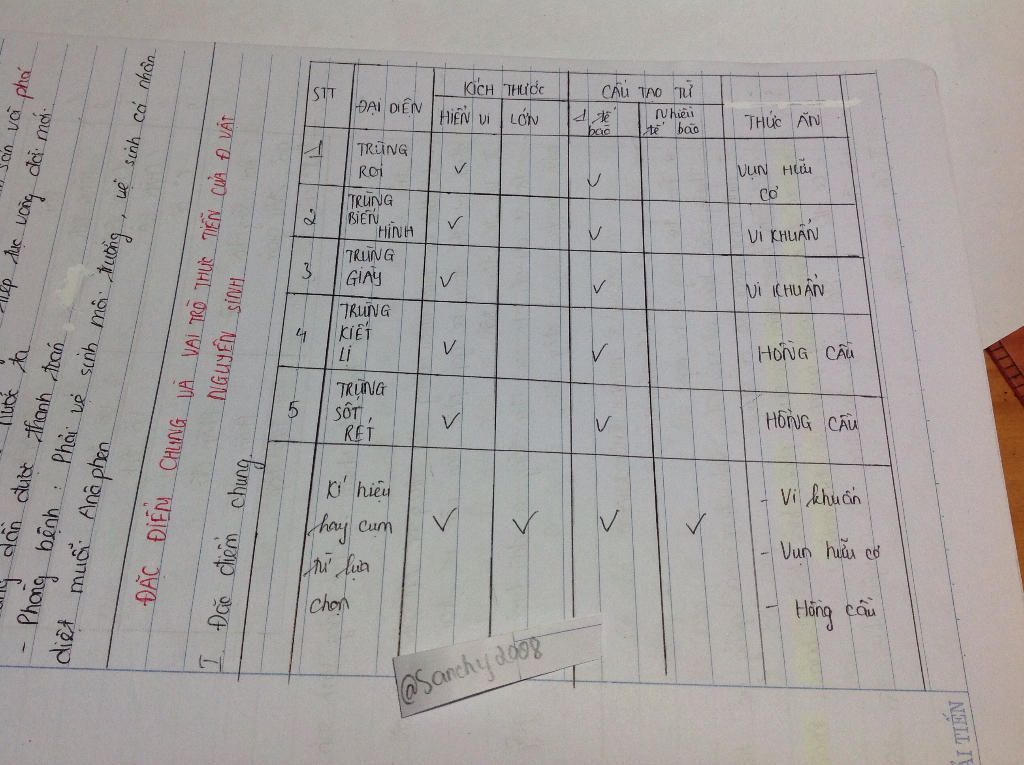 sán và phá
tiếp tục vòng đời mới.
- Phòng bệnh : Phải vệ sinh môi trường, vệ sinh cá nhân
diệt muỗi Anôphen
dân được thanh toán
ĐẶC ĐIỂM CHUNG VÀ VAI TRÒ THỰC TIỄN CỦA Đ VẬT
NGUYÊN SINH
I Đặc điểm chung
STT
ĐẠI DIỆN
KÍCH THƯỚC
HIỂN VI
LỚN
CẤU TẠO TỪ
1 tế
bào
Nhiều
tế bào
THỨC ĂN
1
TRÙNG
ROI
✓
✓
VỤN HỮU
CƠ
2
TRÙNG
BIẾN
HÌNH
✓
✓
VI KHUẨN
3
TRÙNG
GIÀY
✓
✓
VI KHUẨN
4
TRÙNG
KIẾT
LỊ
✓
✓
HỒNG CẦU
5
TRÙNG
SỐT
RÉT
✓
✓
HỒNG CẦU
Kí hiệu
hay cụm
từ lựa
chọn
✓
✓
✓
✓
- Vi khuẩn
- Vụn hữu cơ
- Hồng cầu
@Sanchy2008
ẢI TIẾN